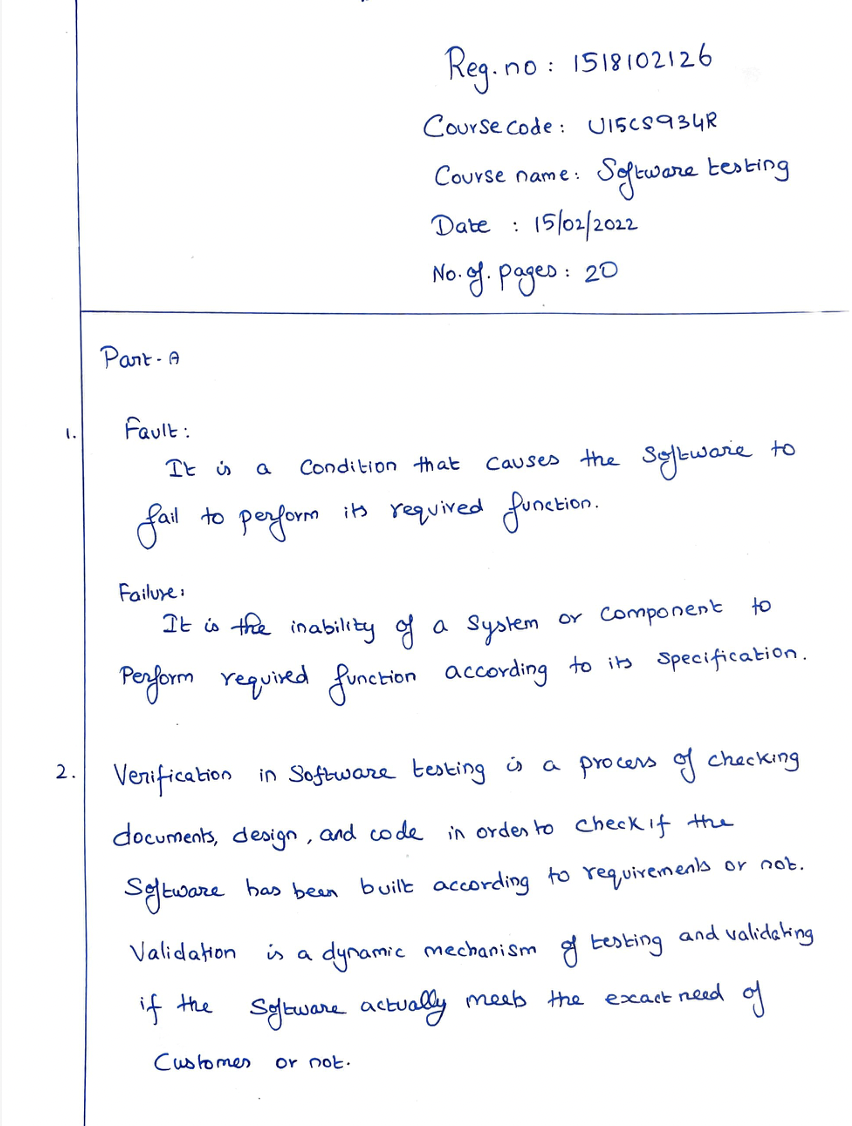 Reg.no : 1518102126
Course code : U15CS934R
Course name : Software testing
Date : 15/02/2022
No.of.pages : 20
Part-A
1. Fault :
It is a Condition that causes the Software to
fail to perform its required function.
Failure :
It is the inability of a System or Component to
Perform required function according to its specification.
2. Verification in Software testing is a process of checking
documents, design, and code in order to check if the
Software has been built according to requirements or not.
Validation is a dynamic mechanism of testing and validating
if the Software actually meets the exact need of
Customer or not.